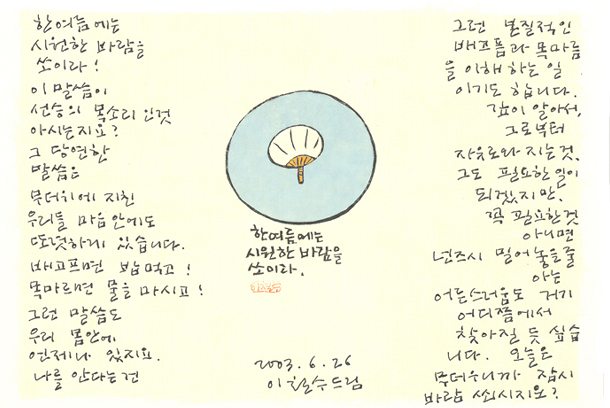 한여름에는
시원한 바람을
쏘이라!
이 말씀이
선승의 목소리인것
아시는지요?
그 당연한
말씀은
무더위에 지친
우리들 마음안에도
또렷하게 있습니다.
배고프면 밥먹고!
목마르면 물을 마시고!
그런 말씀도
우리 몸안에
언제나 있지요.
나를 안다는건
한여름에는
시원한 바람을
쏘이라.
2003. 6. 26
이철수드림
그런 본질적인
배고픔과 목마름
을 이해하는 일
이기도 합니다.
깊이 알아서,
그로부터
자유로와지는것,
그도 필요한 일이
되겠지만,
꼭 필요한것
아니면
넌즈시 밀어놓을줄
아는
어른스러움도 거기
어디쯤에서
찾아질 듯 싶습
니다. 오늘은
무더우니까 잠시
바람 쐬시지요?